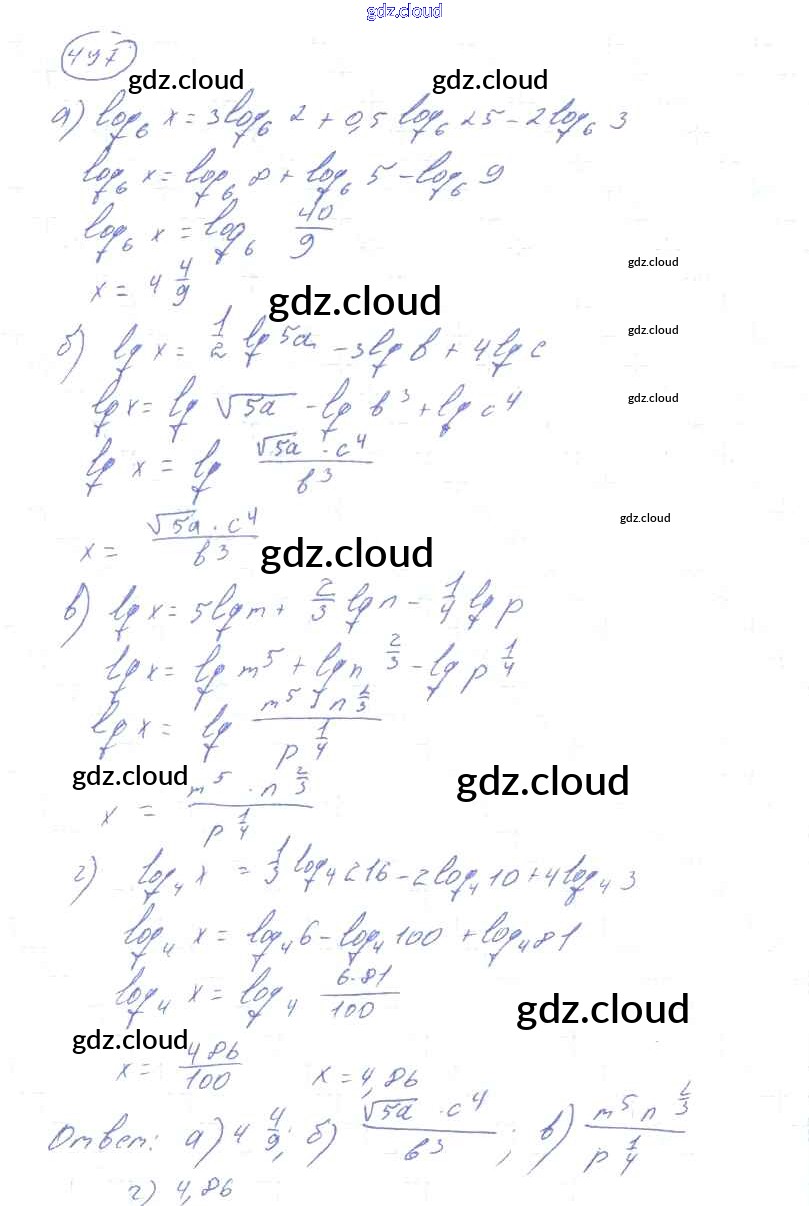 gdz.cloud
497
gdz.cloud gdz.cloud
а) log₆ x = 3log₆ 2 + 0,5 log₆ 25 - 2log₆ 3
log₆ x = log₆ 8 + log₆ 5 - log₆ 9
log₆ x = log₆ 40/9
gdz.cloud
x = 4 4/9
gdz.cloud
gdz.cloud
б) lg x = 1/2 lg 5a - 3lg b + 4lg c
gdz.cloud
lg x = lg √5a - lg b³ + lg c⁴
lg x = lg √5a · c⁴/b³
gdz.cloud
x = √5a · c⁴/b³
gdz.cloud
в) lg x = 5lg m + 2/3 lg n - 1/4 lg p
lg x = lg m⁵ + lg n^2/3 - lg p^1/4
lg x = lg m⁵ · n^2/3 / p^1/4
gdz.cloud gdz.cloud
x = m⁵ · n^2/3 / p^1/4
г) log₄ x = 1/3 log₄ 216 - 2log₄ 10 + 4log₄ 3
log₄ x = log₄ 6 - log₄ 100 + log₄ 81
log₄ x = log₄ 6·81/100
gdz.cloud
gdz.cloud
x = 486/100 x = 4,86
Ответ: а) 4 4/9; б) √5a · c⁴/b³; в) m⁵ n^2/3 / p^1/4
г) 4,86